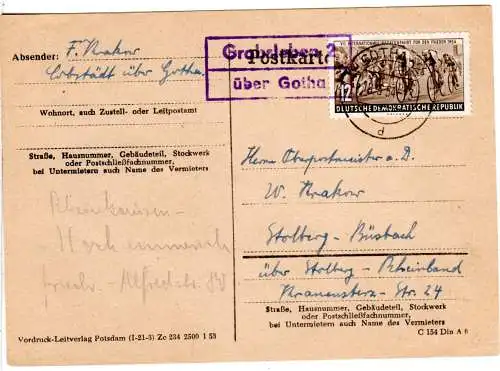 Absender: F. Krakow
Cobstädt über Gotha
Wohnort, auch Zustell- oder Leitpostamt
Straße, Hausnummer, Gebäudeteil, Stockwerk
oder Postschließfachnummer,
bei Untermietern auch Name des Vermieters
Vordruck-Leitverlag Potsdam (I-21-3) Zc 234 2500 1 53
Postkarte
Grabsleben 2
über Gotha
FÜR DEN FRIEDEN 1954
12
DEUTSCHE DEMOKRATISCHE REPUBLIK
d
Herrn Oberpostmeister a.D.
W. Krakow
Stolberg - Büsbach
über Stolberg - Rheinland
Str. 24
Straße, Hausnummer, Gebäudeteil, Stockwerk
oder Postschließfachnummer,
bei Untermietern auch Name des Vermieters
C 154 Din A 6